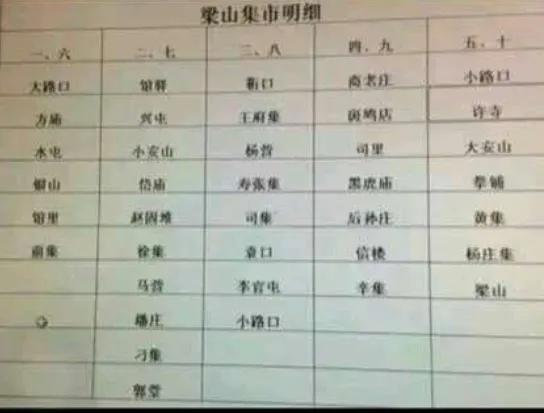 梁山集市明细
一、六 二、七 三、八 四、九 五、十
大路口 馆驿 靳口 商老庄 小路口
方庙 兴屯 王府集 斑鸠店 许寺
水屯 小安山 杨营 司里 大安山
银山 岱庙 寿张集 黑虎庙 拳铺
馆里 赵固堆 司集 后孙庄 黄集
前集 徐集 袁口 信楼 杨庄集
马营 李官屯 辛集 梁山
潘庄 小路口
刁集
郭堂